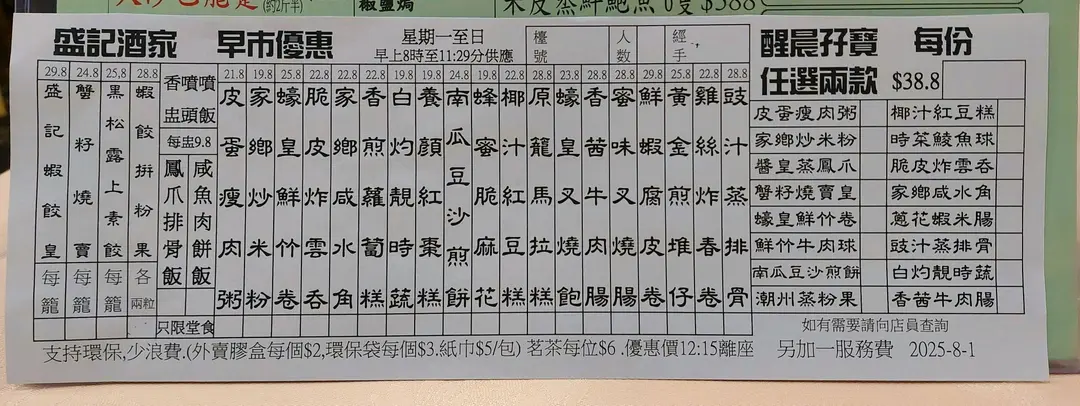 (約2斤半)
椒鹽焗
盛記酒家 早市優惠
星期一至日
早上8時至11:29分供應
檯號
人数
經手
29.8
盛記蝦餃皇
每籠
24.8
蟹籽燒賣
每籠
25.8
黑松露上素餃
每籠
28.8
蝦餃拚粉果
各兩粒
香噴噴
盅頭飯
每盅9.8
鳳爪排骨飯
咸魚肉餅飯
只限堂食
21.8
皮蛋瘦肉粥
19.8
家鄉炒米粉
25.8
蠔皇鮮竹卷
22.8
脆皮炸雲吞
22.8
家鄉咸水角
22.8
香煎蘿蔔糕
19.8
白灼靚時蔬
19.8
養顏紅棗糕
24.8
南瓜豆沙煎餅
19.8
蜂蜜脆麻花
22.8
椰汁紅豆糕
28.8
原籠馬拉糕
23.8
蠔皇叉燒飽
28.8
香茜牛肉腸
28.8
蜜味叉燒腸
29.8
鮮蝦腐皮卷
25.8
黃金煎堆仔
22.8
雞絲炸春卷
28.8
豉汁蒸排骨
醒晨孖寶 每份
任選兩款 $38.8
皮蛋瘦肉粥 椰汁紅豆糕
家鄉炒米粉 時菜鯪魚球
醬皇蒸鳳爪 脆皮炸雲吞
蟹籽燒賣皇 家鄉咸水角
蠔皇鮮竹卷 蔥花蝦米腸
鮮竹牛肉球 豉汁蒸排骨
南瓜豆沙煎餅 白灼靚時蔬
潮州蒸粉果 香茜牛肉腸
如有需要請向店員查詢
支持環保,少浪費.(外賣膠盒每個$2,環保袋每個$3.紙巾$5/包) 茗茶每位$6 .優惠價12:15離座 另加一服務費 2025-8-1